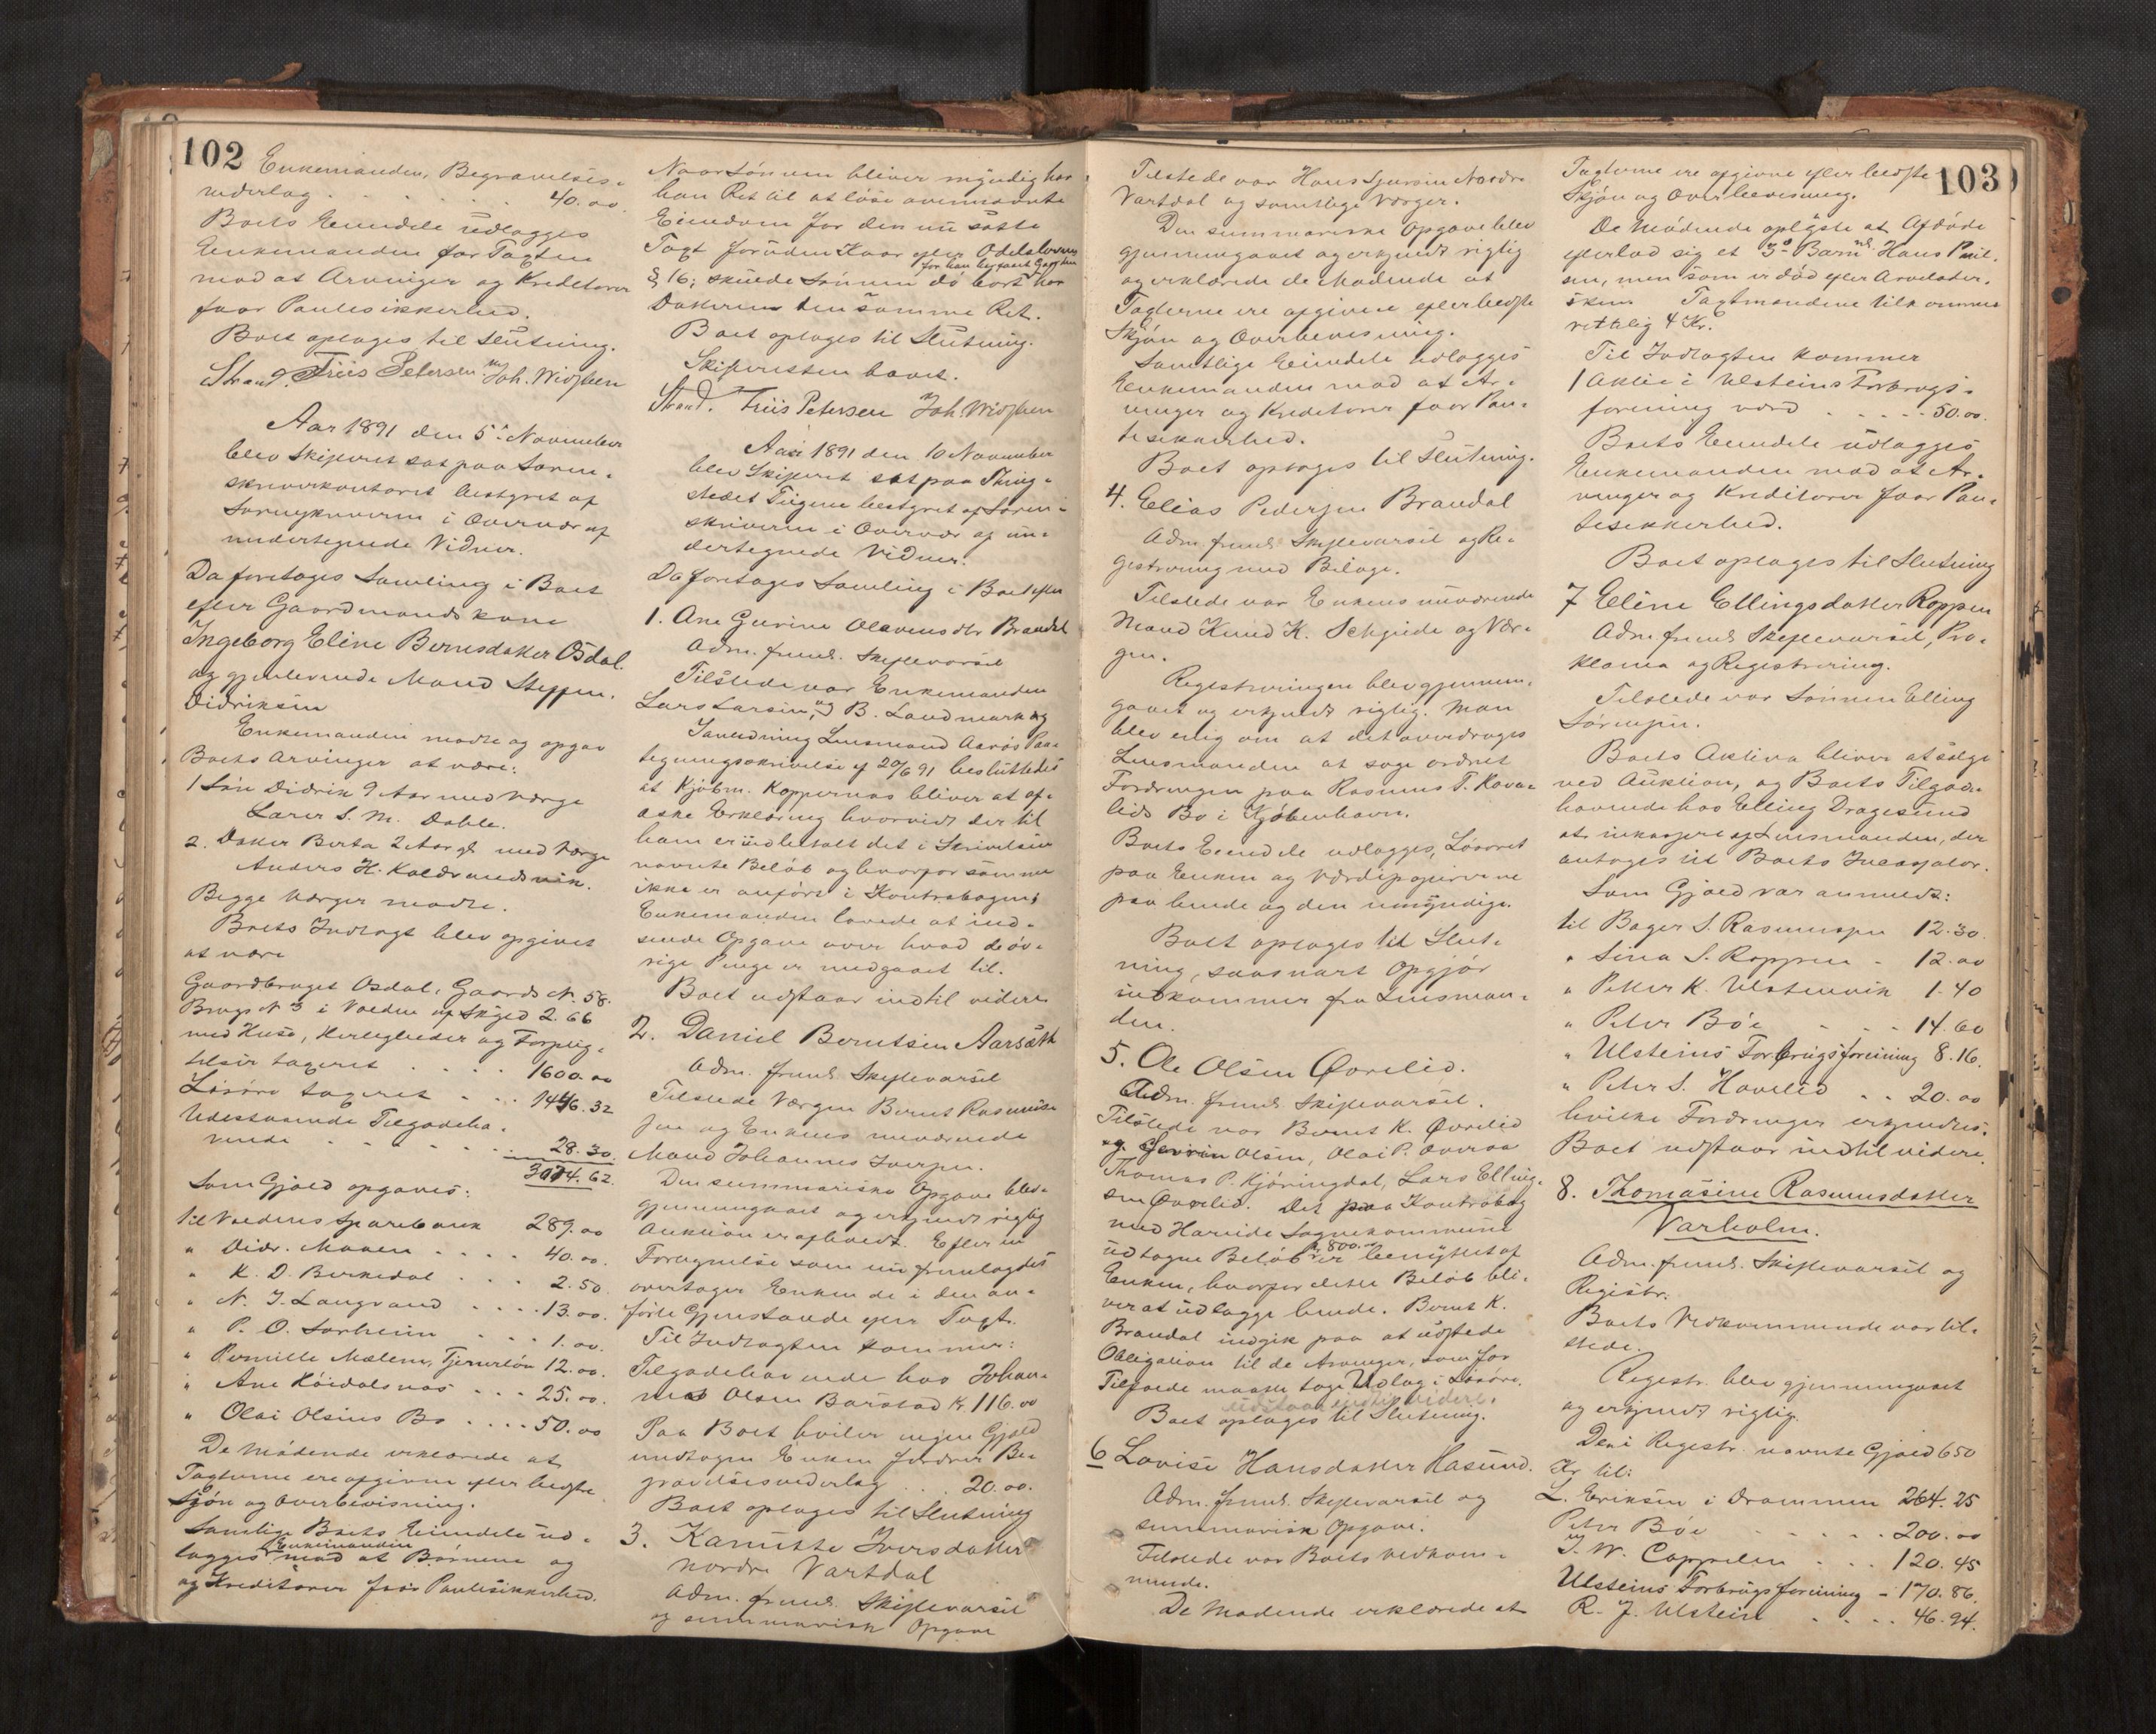 102
Enkemanden, Begravelses-
vederlag . . . . . . 40.00
Boets Eiendele udlægges
Enkemanden for Taxten
mod at Arvinger og Kreditorer
faar Pantesikkerhed.
Boet optages til Slutning.
Strand. Friis Petersen Joh. Widsteen
Aar 1891 den 5. November
blev Skifteret sat paa Soren-
skriverkontoret bestyret af
Sorenskriveren i Overvær af
undertegnede Vidner.
Da foretages Samling i Boet
efter Gaardmandskone
Ingeborg Eline Berntsdatter Osdal.
og gjenlevende Mand Steffen
Didriksen
Enkemanden mødte og opgav
Boets Arvinger at være:
1 Søn Didrik 9 Aar med Værge
Lærer S. M. Dahle.
2. Datter Berta 2 Aar gl. med Værge
Anders H. Kaldre
Begge Værger mødte.
Boets Indtægt blev opgivet
at være
Gaardbruget Osdal, Gaards No. 58.
Brugs No 3 i Volden af Skyld 2.66
med Huse, Herligheder og Forplig-
telser taxeret . . . 1600.00
Løsøre taxeret . . . 1446.32
Udestaaende Tilgodeha-
vende . . . . . 28.30.
3074.62.
Som Gjæld opgaves:
til Voldens Sparebank 289.00
" Didr. Maaen . . . . 40.00.
" K. D. Birkedal . . . 2.50
" N. J. Langvand . . . . 13.00.
" P. O. Sørheim . . . 1.00.
" Pernille Mælem, Tjenerløn 12.00.
" Ane Høidalsnæs . . . 25.00.
" Olai Olsens Bo . . . . 50.00
De Mødende erklærede at
Taxterne ere afgivne efter bedste
Skjøn og Overbevisning.
Samtlige Boets Eiendele ud-
lægges Enkemanden mod at Børnene og
og Kreditorer faar Pantesikkerhed.
Naar Sønnen bliver myndig har
han Ret til at løse ovennævnte
Eiendom for den nu satte
Taxt foruden Kaar efter Odelsloven
§ 16; skulde Sønnen dø bort før han har faaet Gaarden har
Datteren den samme Ret.
Boet optages til Slutning.
Skifteretten hævet.
Strand. Friis Petersen Joh. Widsteen
Aar 1891 den 10 November
blev Skifteret sat paa Thing-
stedet Tugene bestyret af Soren-
skriveren i Overvær af un-
dertegnede Vidner.
Da foretages Samling i Boet efter
1. Ane Gurine Olavensdtr Brandal
Adm. freml. Skiftevarsel
Tilstede var Enkemanden
Lars Larsen, og B. Landmark og
I Anledning Lensmand Aarøs Paa-
tegningsskrivelse af 20/6 91 besluttedes
at Kjøbm. Koppernæs bliver at af-
æske Erklæring hvorvidt der til
ham er indbetalt det i Skrivelsen
nævnte Beløb og hvorfor samme
ikke er anført i Kontrabogen;
Enkemanden lovede at ind-
sende Opgave over hvad de øv-
rige Penge er medgaaet til.
Boet udstaar indtil videre
2. Daniel Berntsen Aarsæth
Adm. freml. Skiftevarsel
Tilstede Værgen Bernt Rasmus-
sen og Enkens nuværende
Mand Johannes Iversen.
Den summariske Opgave blev
gjennemgaaet og erkjendt rigtig
Auktion er afholdt. Efter en
Foregnelse som nu fremlagdes
overtager Enken de i den an-
førte Gjenstande efter Taxt.
Til Indtægten kommer:
Tilgodehavende hos Johan-
nes Olsen Barstad Kr. 116.00
Paa Boet hviler ingen Gjæld
undtagen Enken fordrer Be-
gravelsesvederlag . . . 20.00.
Boet optages til Slutning
3. Kanutte Iversdatter
Nordre Vartdal
Adm. freml. Skiftevarsel
og summarisk Opgave
Tilstede var Hans Nordre
Vartdal og samtlige Værger.
Den summariske Opgave blev
gjennemgaaet og erkjendt rigtig
og erklærede de Mødende at
Taxterne ere afgivne efter bedste
Skjøn og Overbevisning.
Samtlige Eiendele udlægges
Enkemanden mod at Ar-
vinger og Kreditorer faar Pan-
tesikkerhed.
Boet optages til Slutning.
4. Elias Pedersen Brandal
Adm. freml. Skiftevarsel og Re-
gistrering med Bilage.
Tilstede var Enkens nuværende
Mand Knud K. Schjeide og Vær-
gen.
Registreringen blev gjennem-
gaaet og erkjendt rigtig. Man
blev enig om at det overdrages
Lensmanden at søge ordnet
Fordringen paa Rasmus T. Hova-
lids Bo i Kjøbenhavn.
Boets Eiendele udlægges, Løsøret
paa Enken og Værdipapirerne
paa hende og den umyndige.
Boet optages til Slut-
ning, saasnart Opgjør
indkommer fra Lensman-
den.
5. Ole Olsen Øvrelid.
Adm. freml. Skiftevarsel.
Tilstede var Bernt K. Øvrelid
og Severin Olsen, Olai P. Overaa
Thomas P. Kjøringdal, Lars Elling-
sen Øvrelid. Det paa Kontrabog
med Hareide Sognekommune
udtagne Beløb Kr. 800.00 er benyttet af
Enken, hvorfor dette Beløb bli-
ver at udlægge hende. Bernt K.
Brandal indgik paa at udstede
Obligation til de Arvinger, som for
Tilfælde maatte tage Udlæg i Løsøre.
udstaar indtil videre.
Boet optages til Slutning.
6 Lovise Hansdatter Hasund.
Adm. freml. Skiftevarsel og
summarisk Opgave.
Tilstede var Boets Vedkom-
mende.
De Mødende erklærede at
103
Taxterne ere afgivne efter bedste
Skjøn og Overbevisning.
De Mødende oplyste at Afdøde
efterlod sig et 3die Barn nl. Hans Paul-
sen, men som er død efter Arvelader-
sken. Taxtmændene tilkommer
rettelig 4 Kr.
Til Indtægten kommer
1 Aktie i Ulsteins Forbrugs-
forening værd . . . . . 50.00.
Boets Eiendele udlægges
Enkemanden mod at Ar-
vinger og Kreditorer faar Pan-
tesikkerhed.
Boet optages til Slutning
7 Eline Ellingsdatter Roppen
Adm. freml. Skiftevarsel, Pro-
klama og Registrering.
Tilstede var Sønnen Elling
Sørensen.
Boets Aktiva bliver at sælge
ved Auktion, og Boets Tilgode-
havende hos Elling Dragesund
at inkassere af Lensmanden, der
antages til Boets Incassator.
Som Gjæld var anmeldt:
til Bager S. Rasmussen 12.30.
" Sina S. Roppen - 12.00
" Petter K. Ulstenvik 1.40
" Peter Bøe - - - 14.60
" Ulsteins Forbrugsforening 8.16.
" Peter S. Hovelid . . 20.00
hvilke Fordringer erkjendtes.
Boet udstaar indtil videre.
8. Thomasine Rasmusdatter
Varholm.
Adm. freml. Skiftevarsel og
Registr.
Boets Vedkommende var til-
stede.
Registr. blev gjennemgaaet
og erkjendt rigtig.
Den i Registr. nævnte Gjæld 650
Kr. til:
L. Eriksen i Drammen 264.25
Peter Bøe . . . . . . 200.00
J. W. Cappelen . . . 120.45
Ulsteins Forbrugsforening - 170.86.
R. J. Ulstein . . . . 46.94.